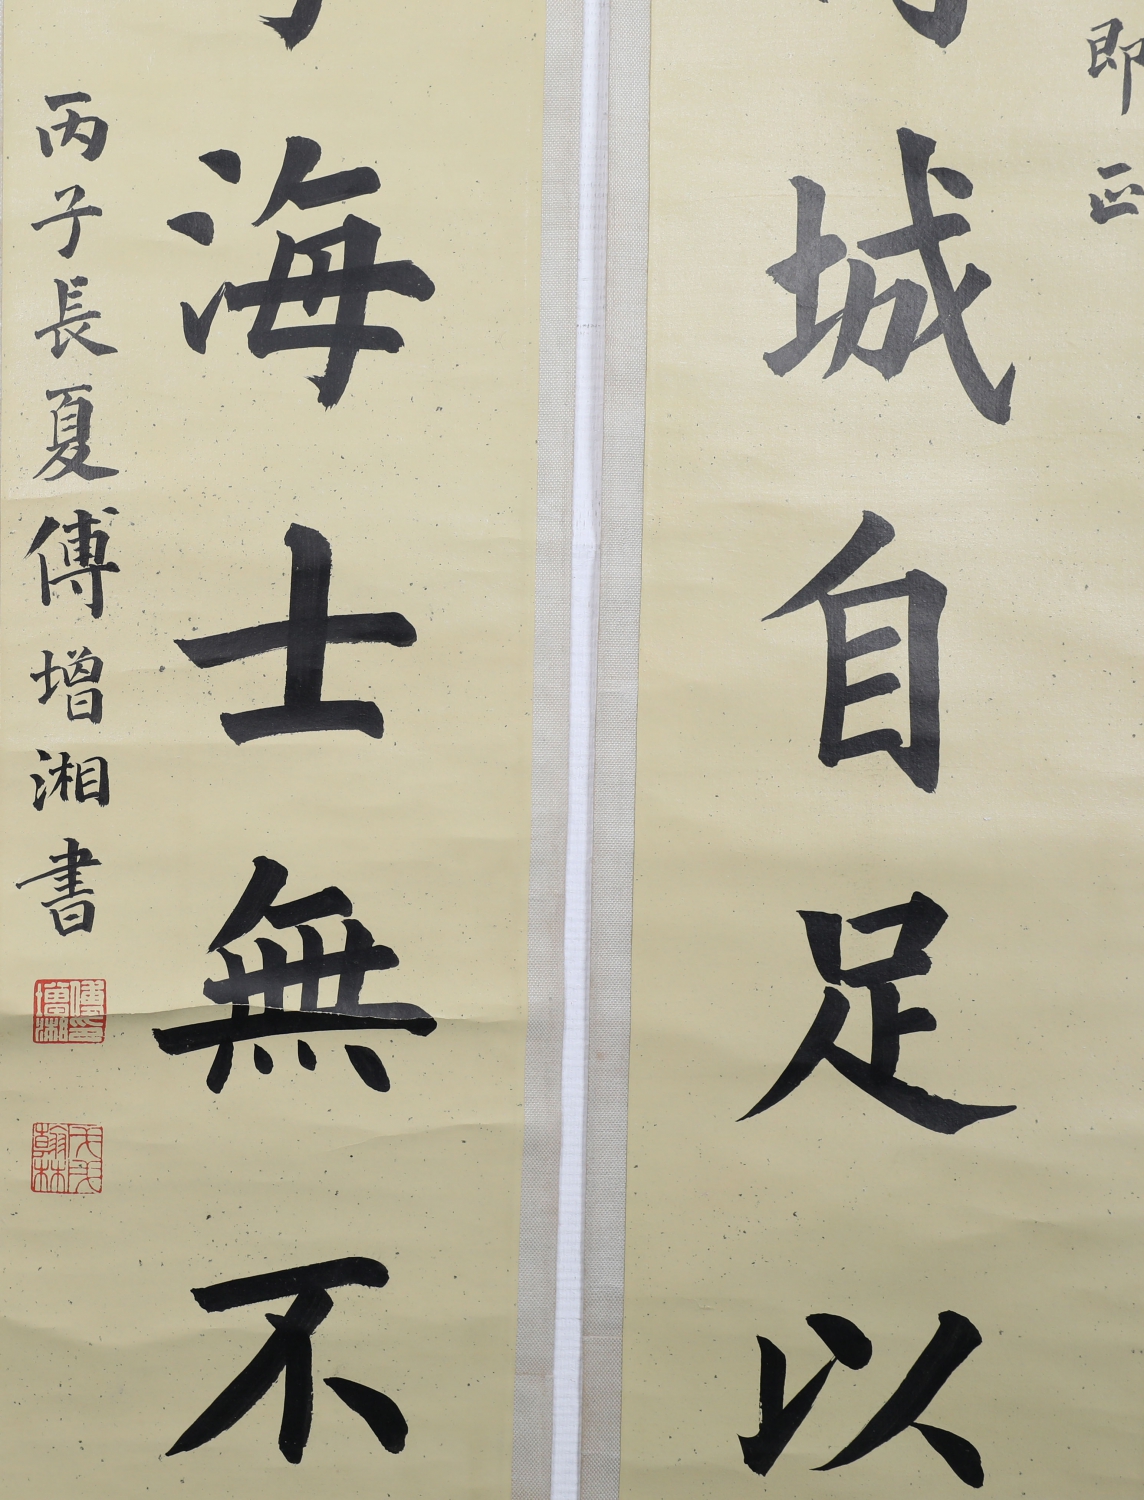 即正
城自足以
海士無不
丙子長夏傅增湘書
傅增湘印
戊戌翰林